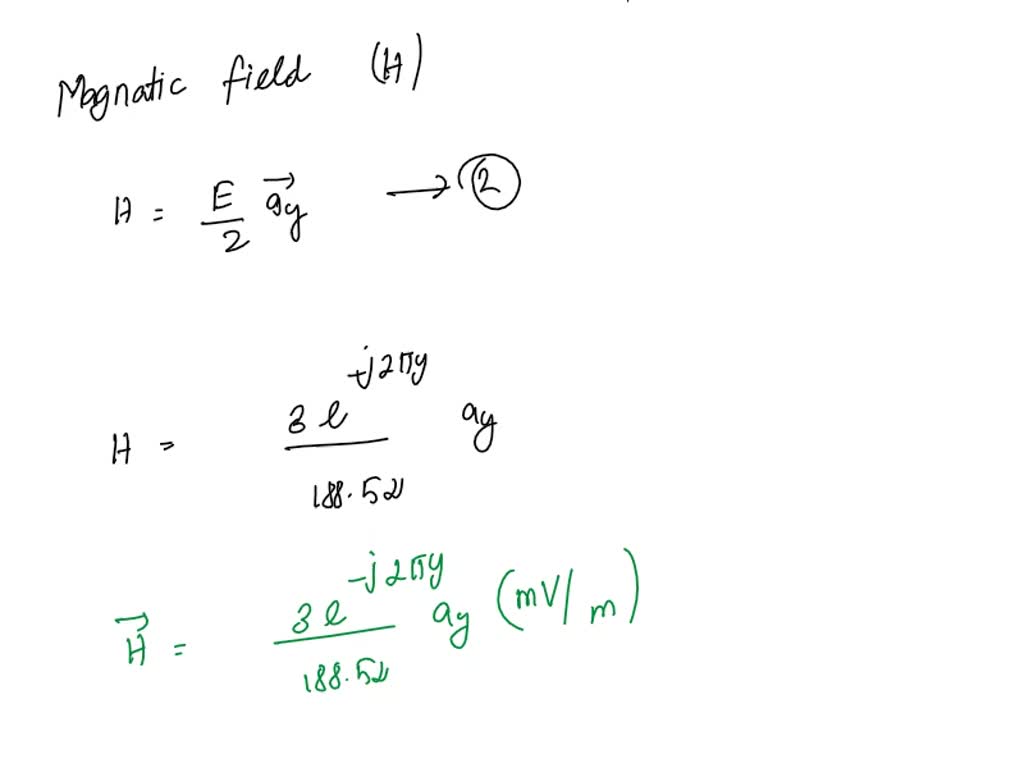 Magnatic field (H)
H = E/2 ay → 2
H = 3e^-j2πy / 188.52 ay
H = 3e^-j2πy / 188.52 ay (mV/m)